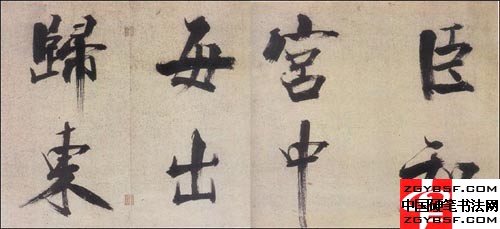 臣知
宮中
每出
歸東
ZGYBSF.COM
中国硬笔书法网
ZGYBSF.COM